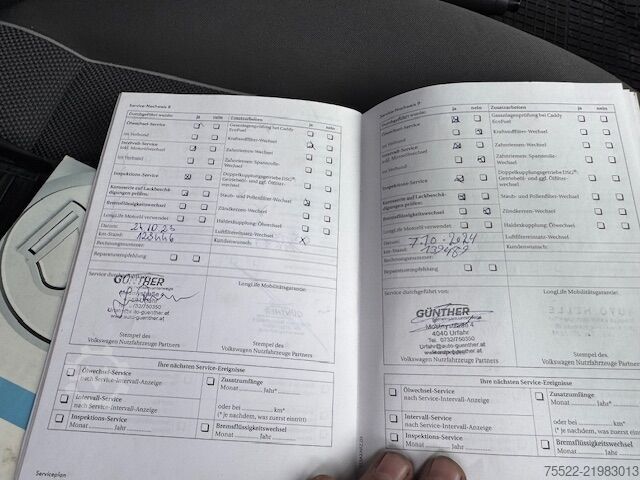 Service-Nachweis 8
Durchgeführt wurde: ja nein
Zusatzarbeiten ja nein
Ölwechsel-Service
im Verbund
Intervall-Service
inkl. Motorölwechsel
im Verbund
Inspektions-Service
Karosserie auf Lackbeschä-
digungen prüfen:
Bremsflüssigkeitswechsel
LongLife Motoröl verwendet
Datum:
Km-Stand:
Rechnungsnummer:
Reparaturempfehlung
Gasanlagenprüfung bei Caddy
EcoFuel
Kraftstofffilter-Wechsel
Zahnriemen-Wechsel
Zahnriemen-Spannrolle-
Wechsel
Doppelkupplungsgetriebe DSG®:
Getriebeöl- und ggf. Ölfilter-
wechsel
Staub- und Pollenfilter-Wechsel
Zündkerzen-Wechsel
Haldexkupplung: Ölwechsel
Luftfiltereinsatz-Wechsel
Kundenwunsch:
Service durchgeführt von:
LongLife Mobilitätsgarantie:
GÜNTHER
4040 Urfahr
Stempel des
Volkswagen Nutzfahrzeuge Partners
Stempel des
Volkswagen Nutzfahrzeuge Partners
Ihre nächsten Service-Ereignisse
Ölwechsel-Service
nach Service-Intervall-Anzeige
Intervall-Service
nach Service-Intervall-Anzeige
Inspektions-Service
Monat Jahr
Zusatzumfänge
Monat Jahr*
oder bei km*
(* je nachdem, was zuerst eintritt)
Bremsflüssigkeitswechsel
Monat Jahr
Serviceplan
Service-Nachweis 9
Durchgeführt wurde: ja nein
Zusatzarbeiten ja nein
Ölwechsel-Service
im Verbund
Intervall-Service
inkl. Motorölwechsel
im Verbund
Inspektions-Service
Karosserie auf Lackbeschä-
digungen prüfen:
Bremsflüssigkeitswechsel
LongLife Motoröl verwendet
Datum: 7.10.2024
Km-Stand:
Rechnungsnummer:
Reparaturempfehlung
Gasanlagenprüfung bei Caddy
EcoFuel
Kraftstofffilter-Wechsel
Zahnriemen-Wechsel
Zahnriemen-Spannrolle-
Wechsel
Doppelkupplungsgetriebe DSG®:
Getriebeöl- und ggf. Ölfilter-
wechsel
Staub- und Pollenfilter-Wechsel
Zündkerzen-Wechsel
Haldexkupplung: Ölwechsel
Luftfiltereinsatz-Wechsel
Kundenwunsch:
Service durchgeführt von:
LongLife Mobilitätsgarantie:
GÜNTHER
4040 Urfahr
Tel. 0732/750350
Urfahr@auto-guenther.at
Stempel des
Volkswagen Nutzfahrzeuge Partners
Stempel des
Volkswagen Nutzfahrzeuge Partners
Ihre nächsten Service-Ereignisse
Ölwechsel-Service
nach Service-Intervall-Anzeige
Intervall-Service
nach Service-Intervall-Anzeige
Inspektions-Service
Monat Jahr
Zusatzumfänge
Monat Jahr*
oder bei km*
(* je nachdem, was zuerst eintritt)
Bremsflüssigkeitswechsel
Monat Jahr
75522-21983013